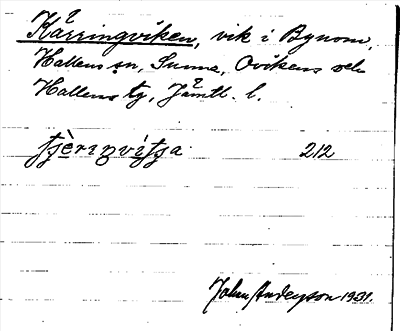 Kärringviken, vik i Bynom,
Hallens sn, Sunne, Ovikens och
Hallens tg, Jämtl. l.
212
John Anderson 1931.